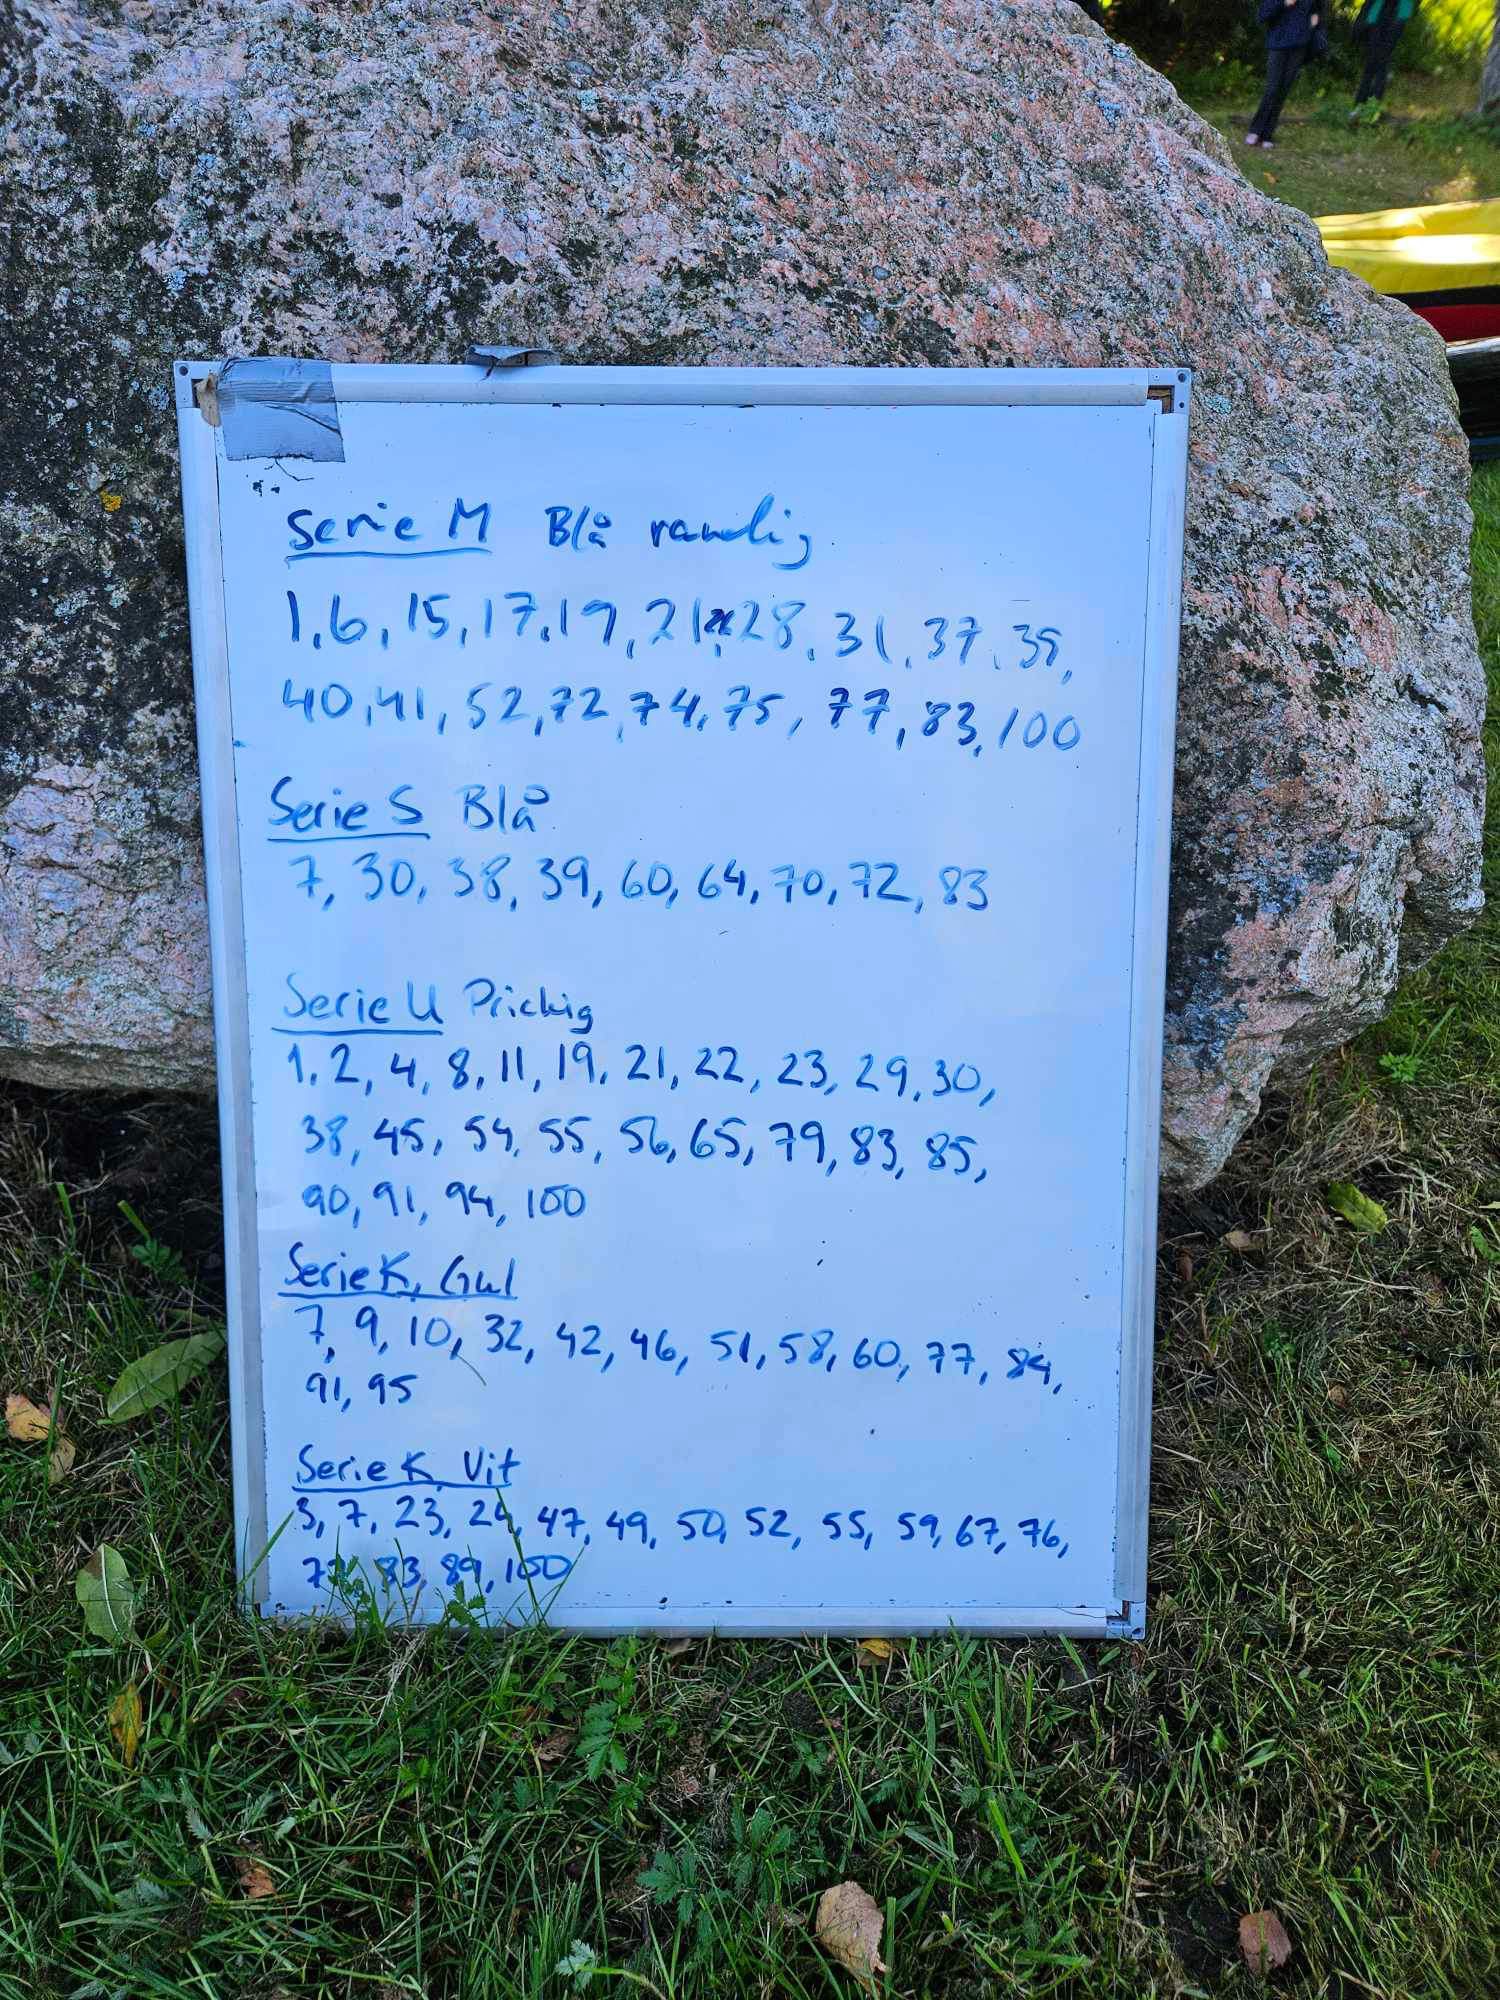 Serie M Blå randig
1, 6, 15, 17, 19, 21, 28, 31, 37, 39,
40, 41, 52, 72, 74, 75, 77, 83, 100
Serie S Blå
7, 30, 38, 39, 60, 64, 70, 72, 83
Serie U Prickig
1, 2, 4, 8, 11, 19, 21, 22, 23, 29, 30,
38, 45, 54, 55, 56, 65, 79, 83, 85,
90, 91, 94, 100
Serie K, Gul
7, 9, 10, 32, 42, 46, 51, 58, 60, 77, 84,
91, 95
Serie K Vit
3, 7, 23, 24, 47, 49, 50, 52, 55, 59, 67, 76,
83, 89, 100